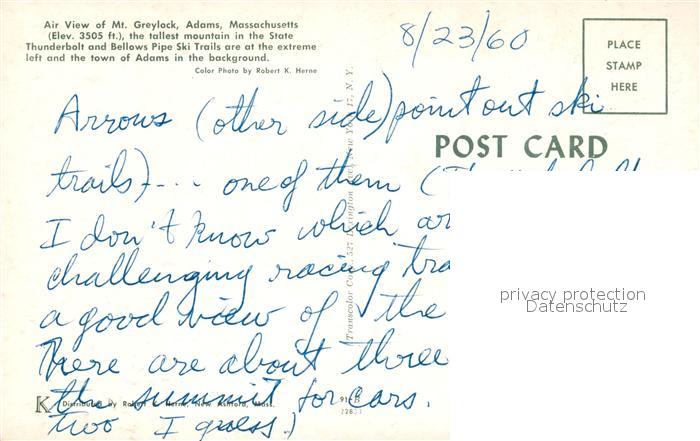 Air View of Mt. Greylock, Adams, Massachusetts
(Elev. 3505 ft.), the tallest mountain in the State
Thunderbolt and Bellows Pipe Ski Trails are at the extreme
left and the town of Adams in the background.
Color Photo by Robert K. Herne
8/23/60
PLACE
STAMP
HERE
POST CARD
Arrows (other side) point out ski
trails) --- one of them (
I don't know which ar
challenging racing tra
a good view of the
There are about three
the summit for cars.
two I guess.)
Distributed by Robert K. Herne, New Ashford, Mass.
Transcolor Corp., 527 Lexington Ave., New York 17, N. Y.
privacy protection
Datenschutz